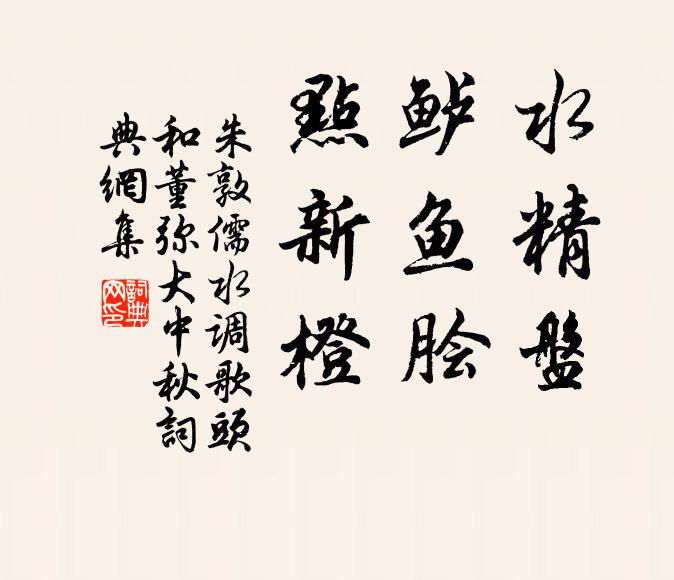 水精盤
鲈鱼脍
點新橙
朱敦儒水调歌頭
和董弥大中秋詞
典網集
詞典
网印